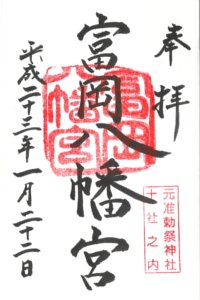 奉拝
富岡八幡宮
富岡八幡宮
元准勅祭神社
十社之内
平成二十三年一月二十二日